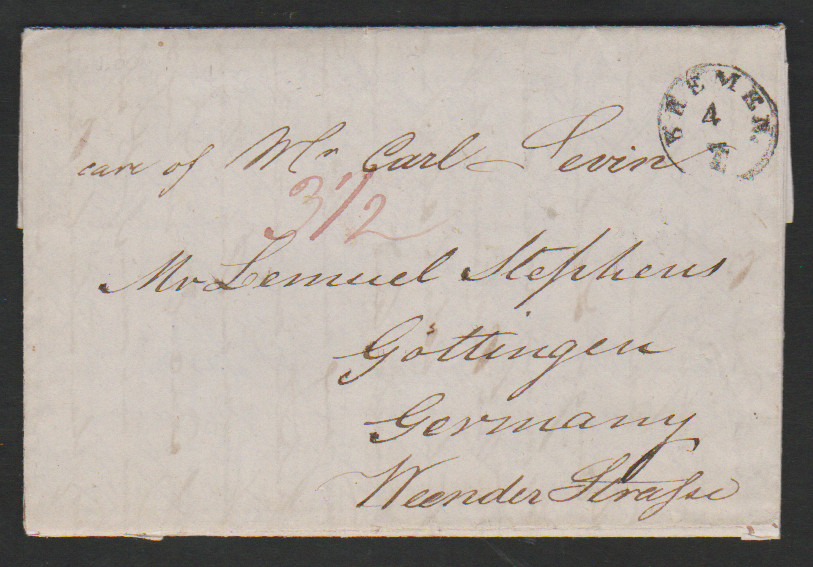 BREMEN
4
care of Mr Carl Sevin
3 1/2
Mr Lemuel Stephens
Göttingen
Germany
Weender Straſse